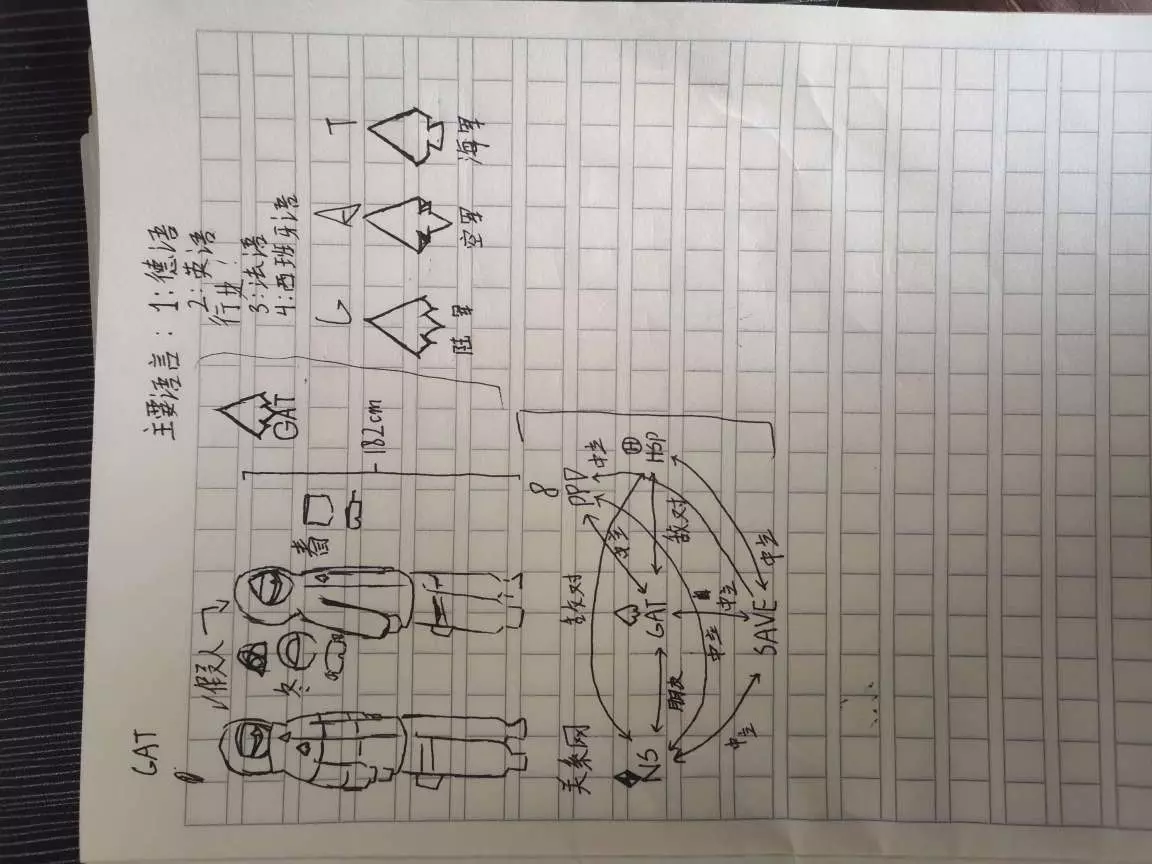 GAT
假人
冬
春
182cm
GAT
主要语言：1:德语
2:英语
行业
3:法语
4:西班牙语
G A T
陆军 空军 海军
关系网
NS
GAT
PPD
HSP
SAVE
敌对
朋友
敌对
中立
中立
中立
中立
中立
8